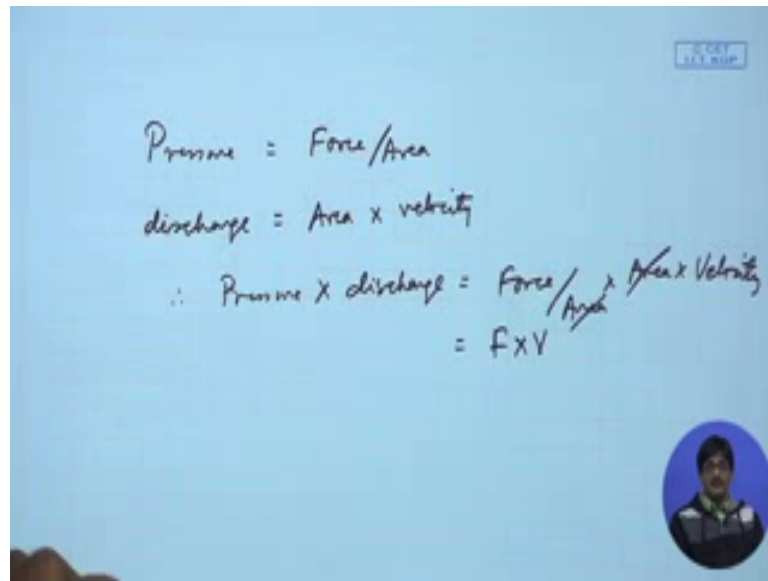 © CET
I.I.T. KGP
Pressure = Force/Area
discharge = Area x velocity
∴ Pressure x discharge = Force/Area x Area x Velocity
= F x V